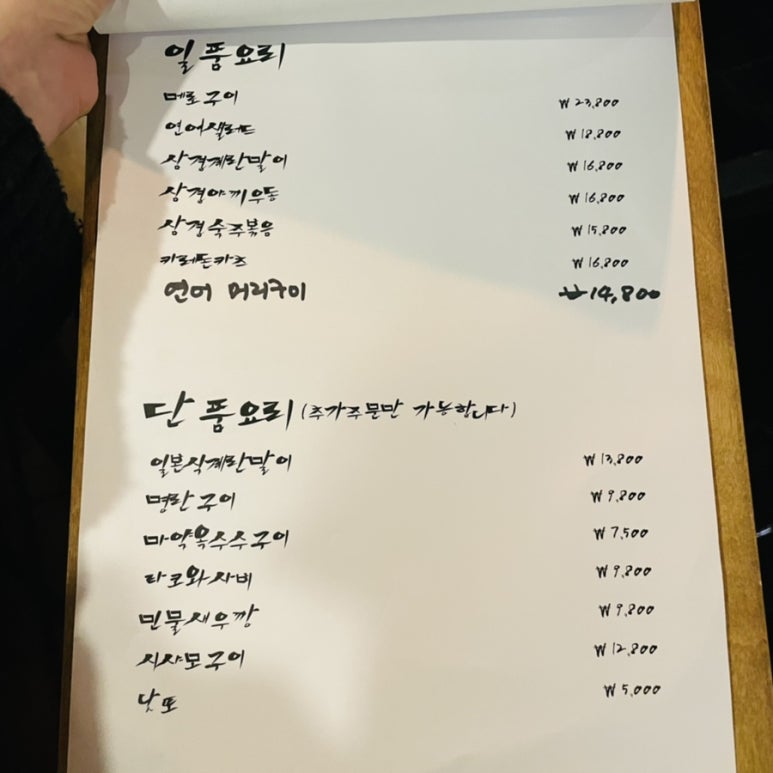 일품요리
메로구이 ₩ 23,800
연어샐러드 ₩ 18,800
상경계란말이 ₩ 16,800
상경야끼우동 ₩ 16,800
상경숙주볶음 ₩ 15,800
카레돈카츠 ₩ 16,800
연어 머리구이 ₩ 14,800
단품요리 (추가주문만 가능합니다)
일본식계란말이 ₩ 13,800
명란구이 ₩ 9,800
마약옥수수구이 ₩ 7,500
타코와사비 ₩ 9,800
민물새우깡 ₩ 9,800
시샤모구이 ₩ 12,800
낫또 ₩ 5,000